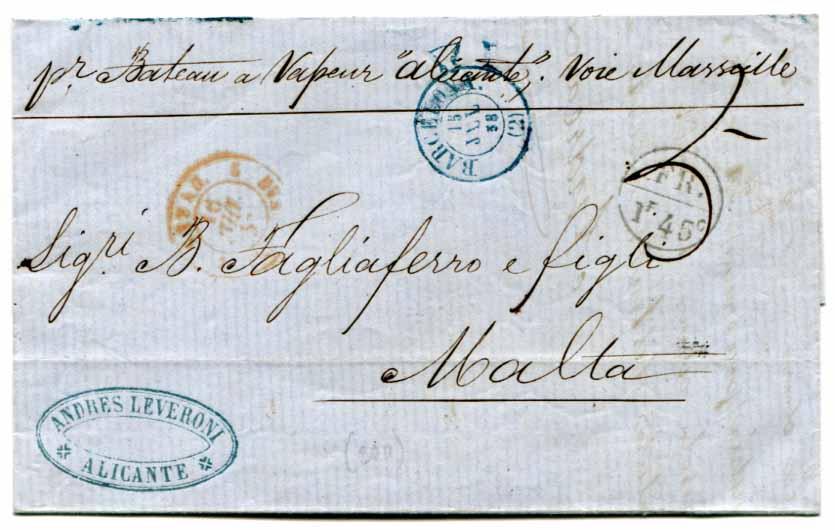 pr. Bateau a Vapeur "alicante". Voie Marseille
BARCELONA
15
JUL
58
(2)
5
FR.
1F. 46c
Sigri B. Tagliaferro e figli
Malta
ANDRES LEVERONI
ALICANTE